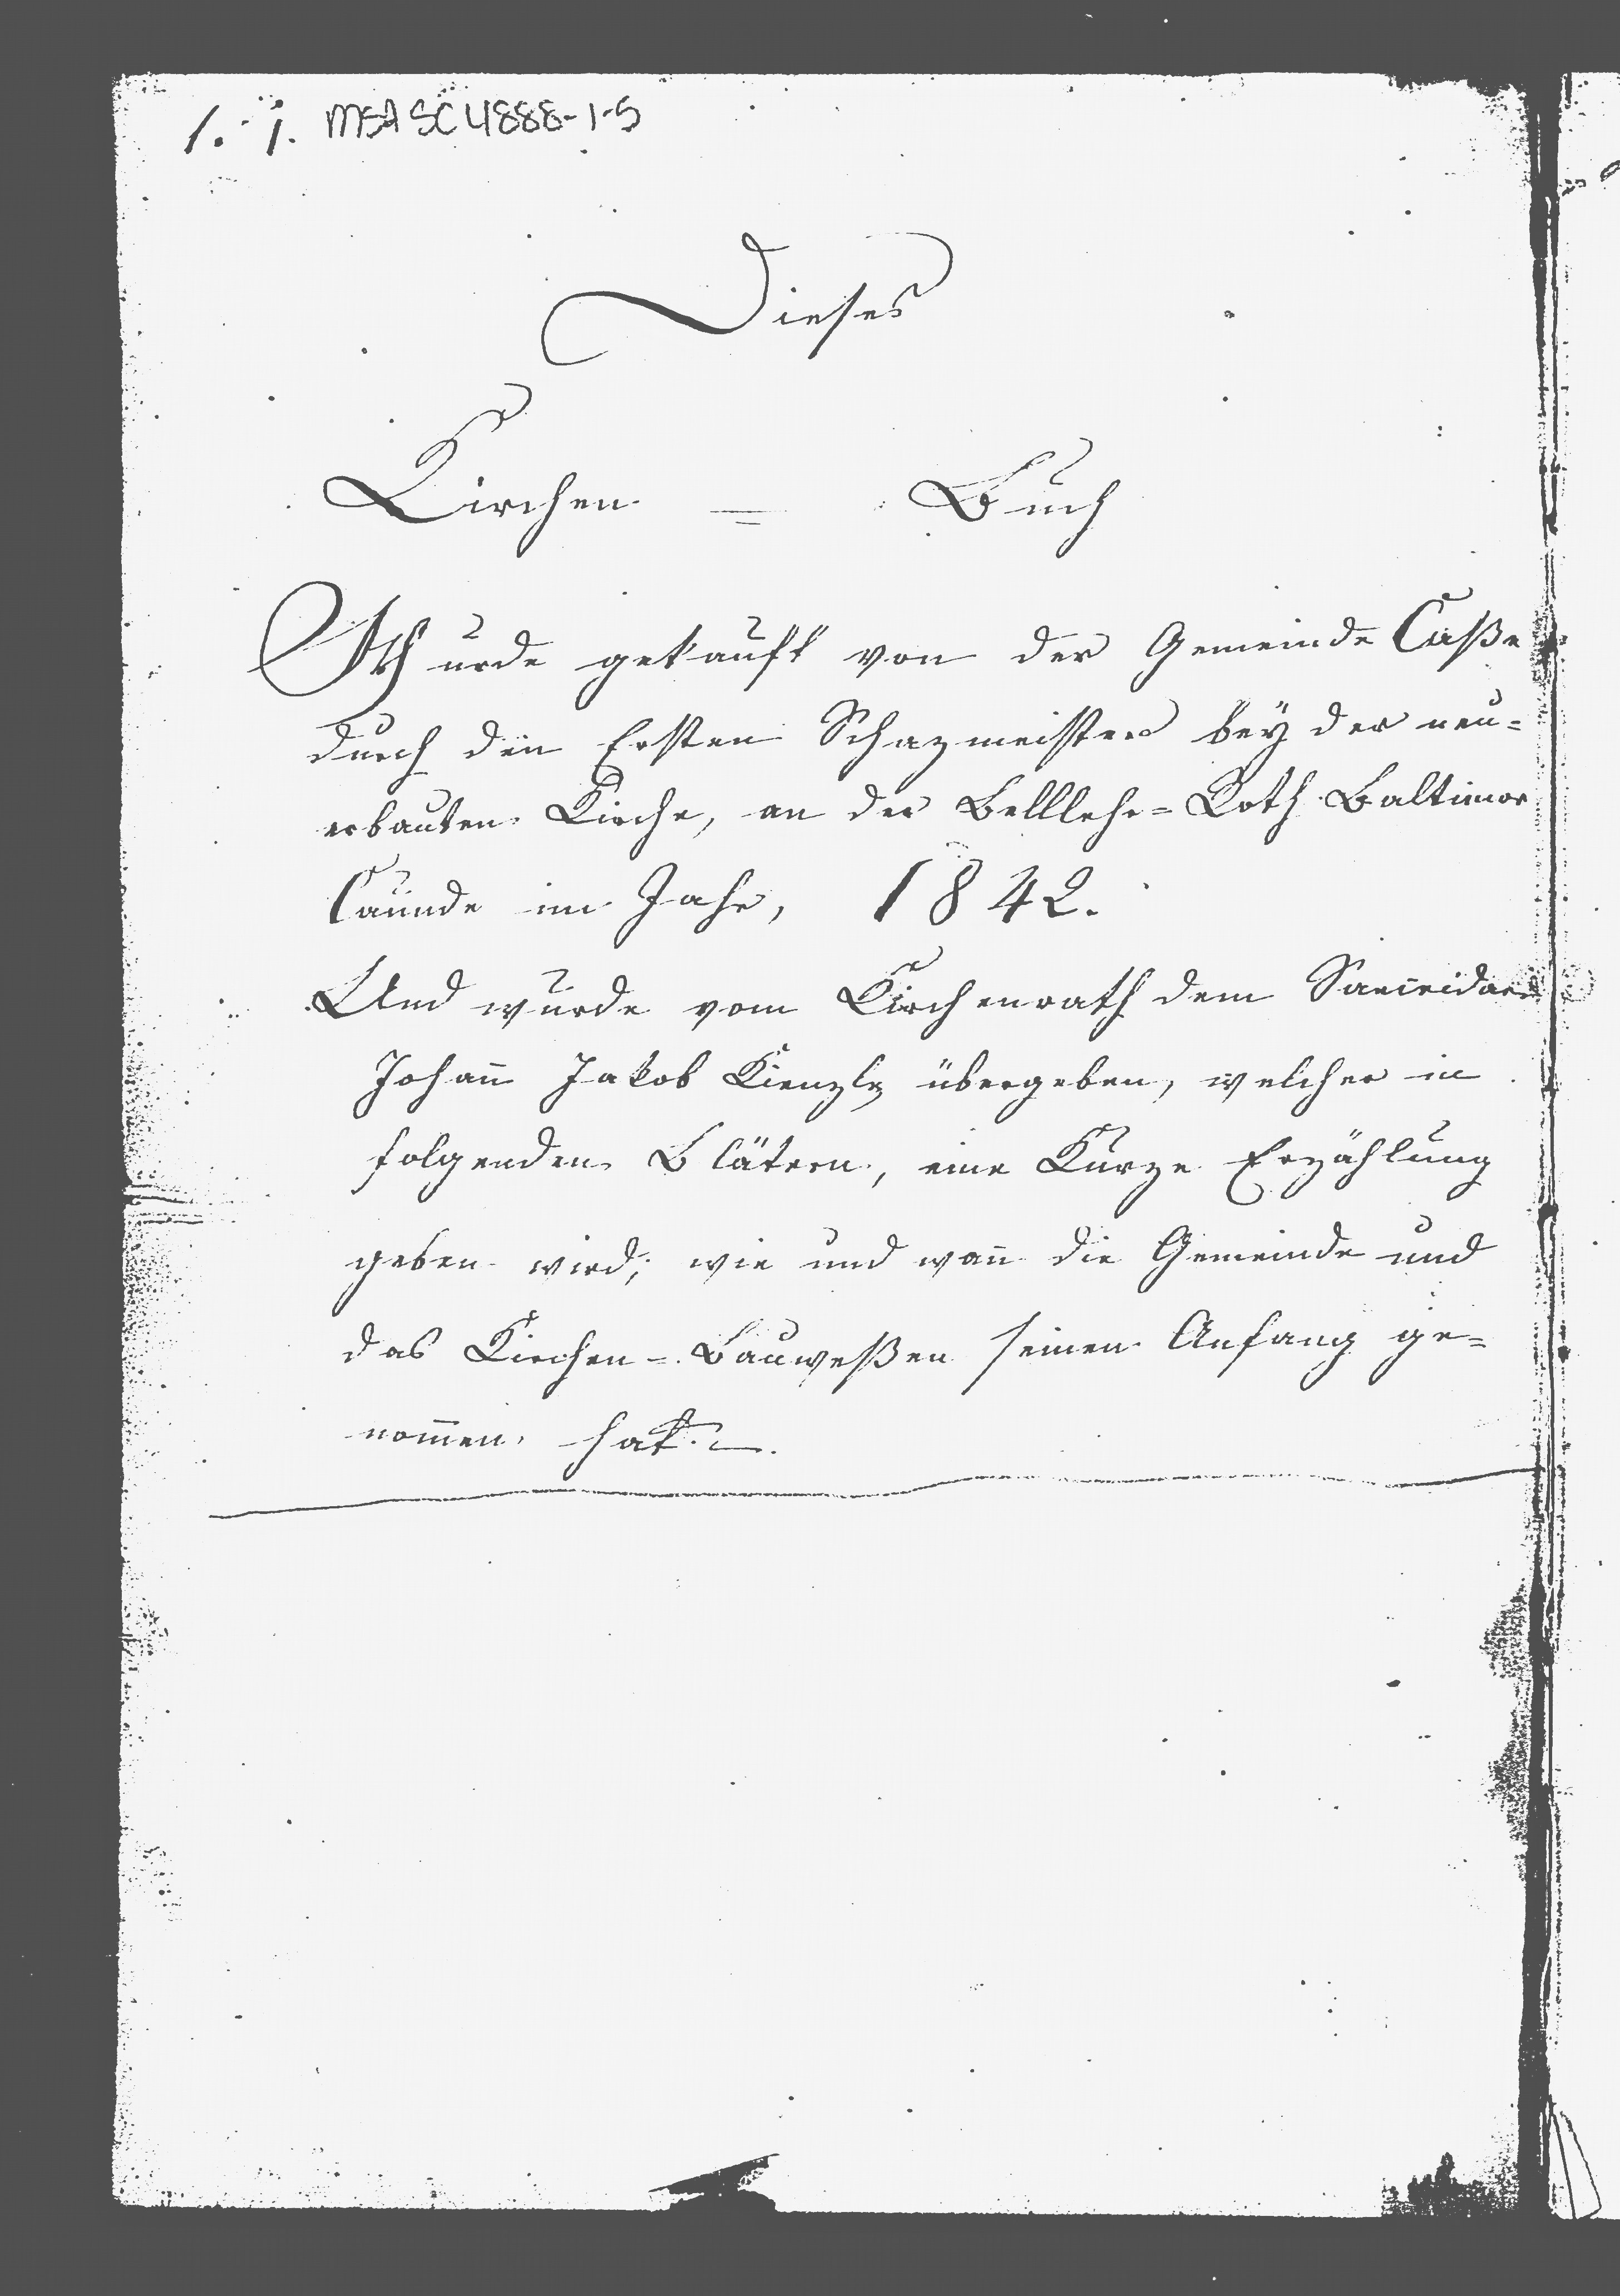 1. 1. MSA SC 4888-1-5
Dieses
Kirchen = Buch
Wurde gekauft von der Gemeinde Caße
durch den Ersten Schazmeister bey der neu=
erbauten Kirche, an der Belllehr=Roth Baltimor
Caunde im Jahr, 1842.
Und wurde vom Kirchenrath dem
Johañ Jakob Kienzle übergeben, welcher in
folgenden Blätern, eine Kurze Erzählung
geben wird; wie und wañ die Gemeinde und
das Kirchen=Bauweßen seinen Anfang ge=
nom̄en hat.